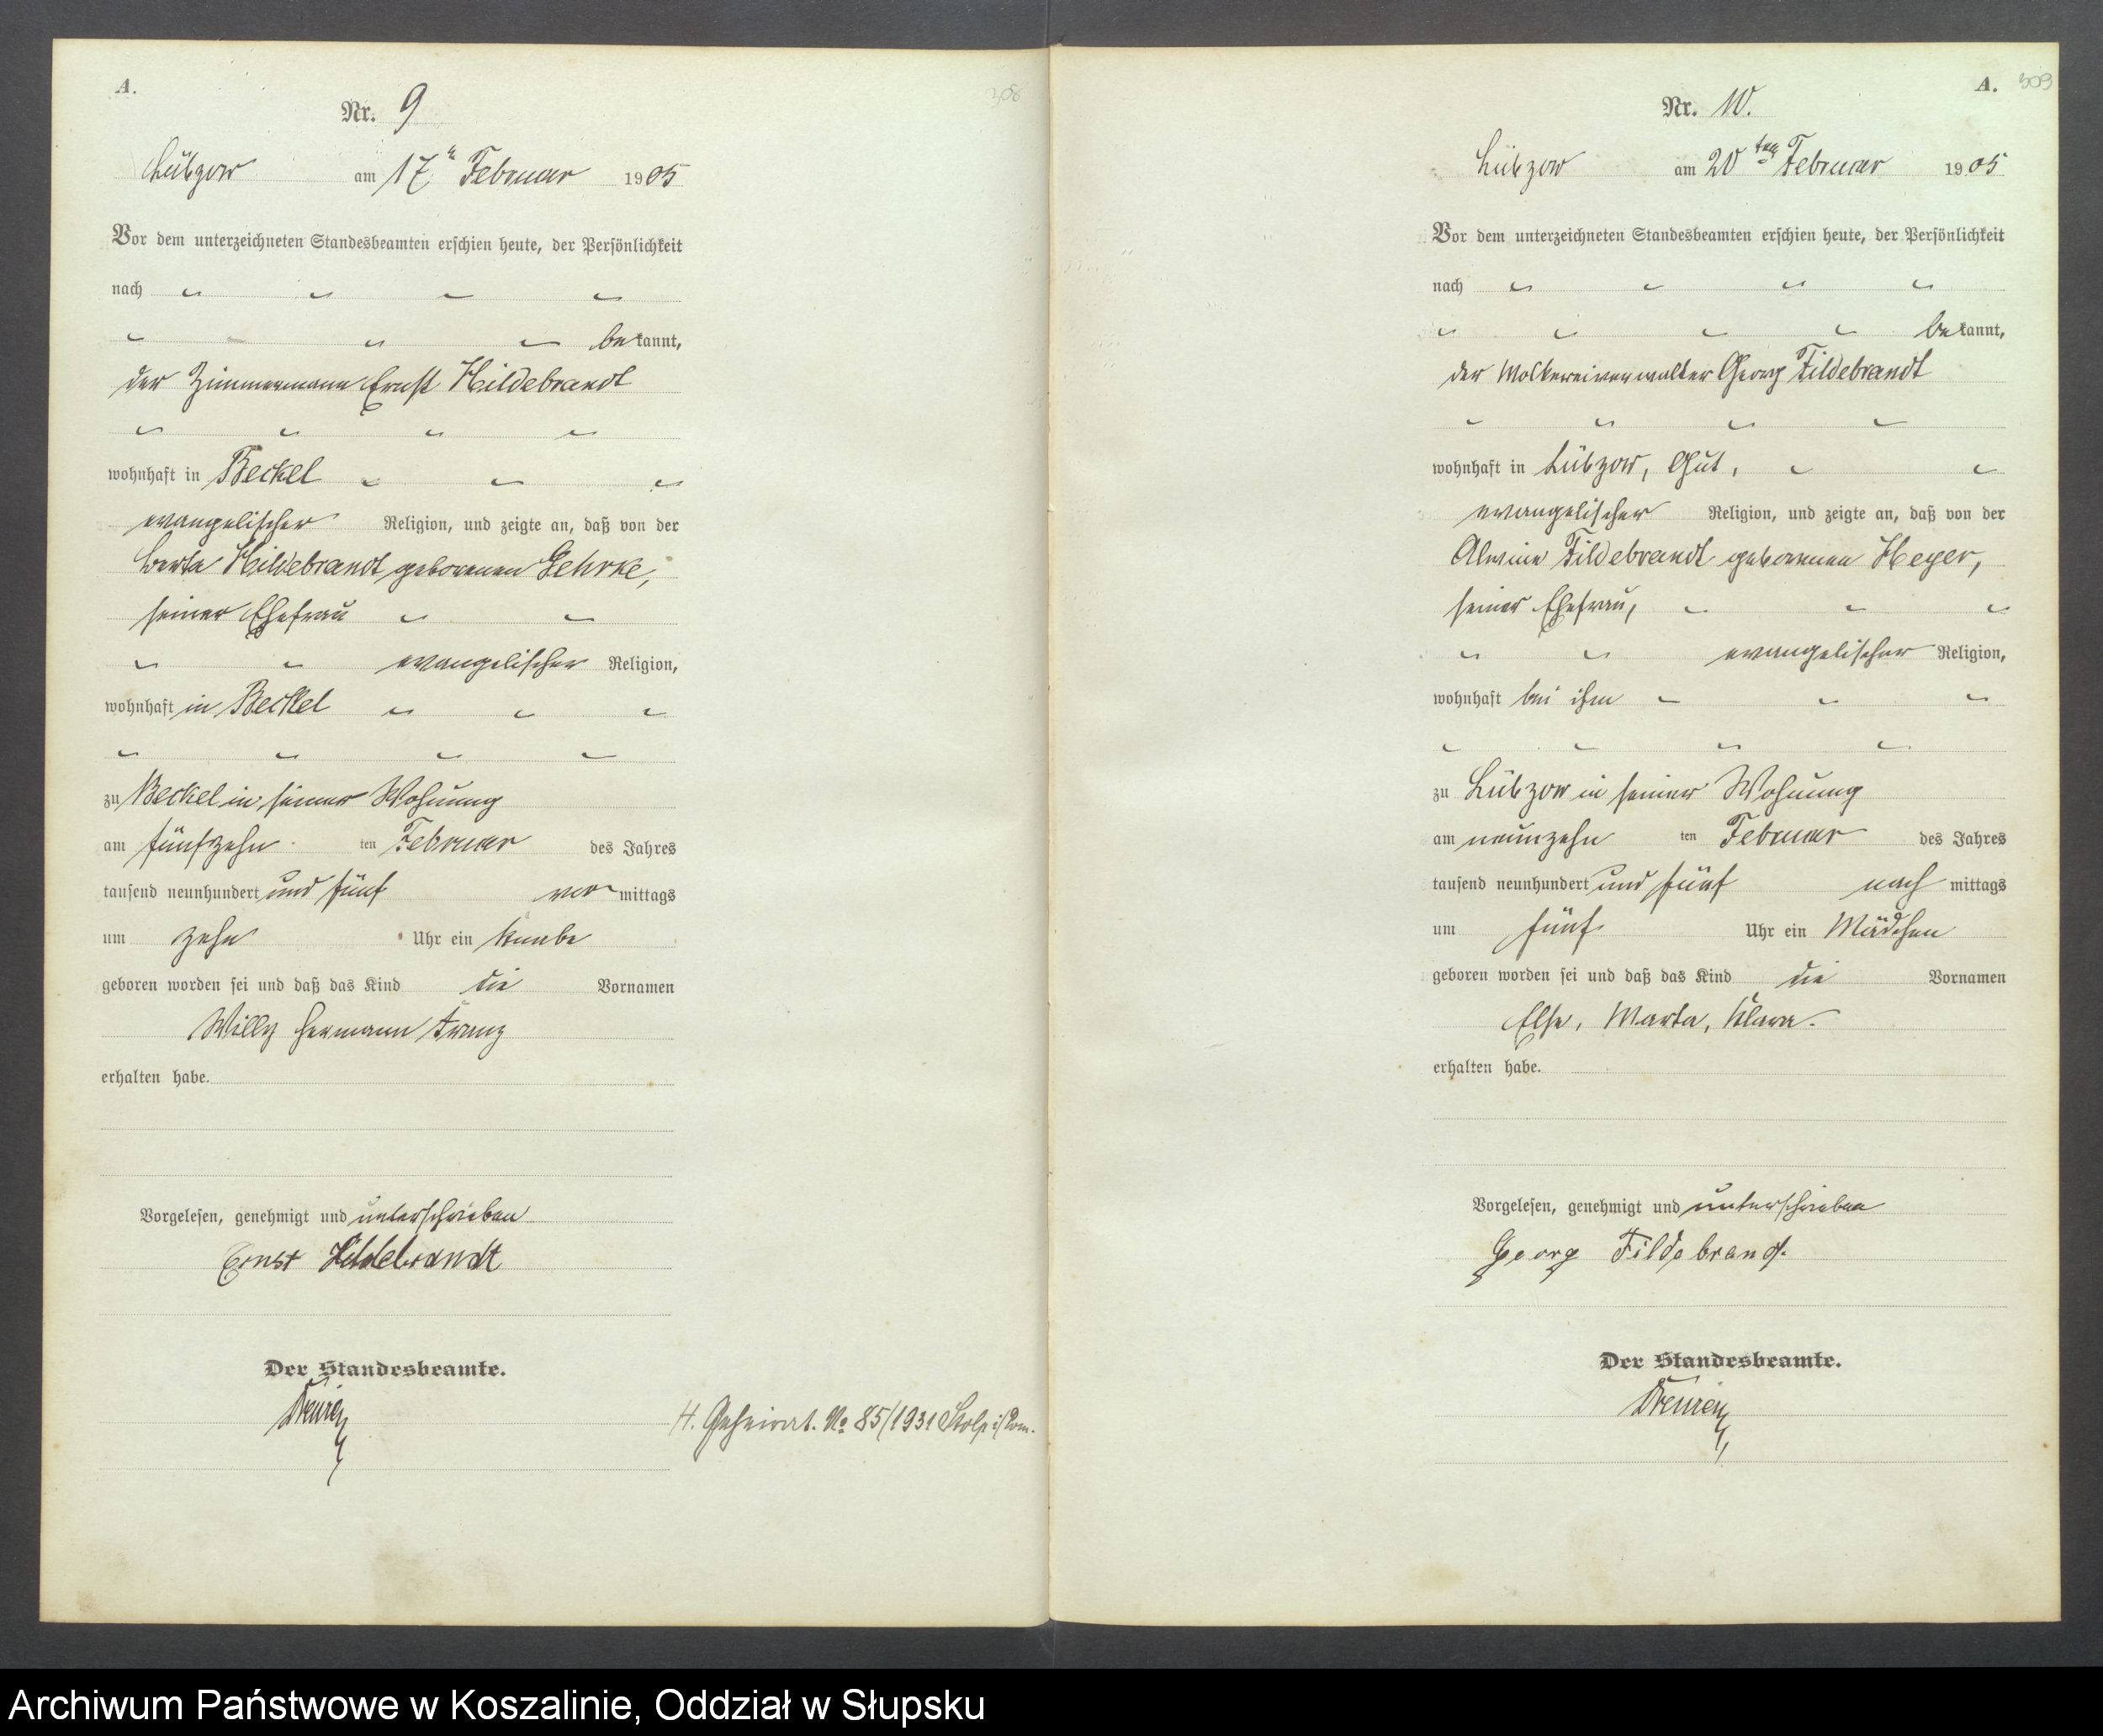 A.
308
Nr. 9
Lübzow am 17ten Februar 1905
Vor dem unterzeichneten Standesbeamten erschien heute, der Persönlichkeit
nach
bekannt,
der Zimmermann Ernst Hildebrandt
wohnhaft in Beckel
evangelischer Religion, und zeigte an, daß von der
Berta Hildebrandt geborenen Gehrke,
seiner Ehefrau
evangelischer Religion,
wohnhaft in Beckel
zu Beckel in seiner Wohnung
am fünfzehn ten Februar des Jahres
tausend neunhundert und fünf vor mittags
um zehn Uhr ein Knabe
geboren worden sei und daß das Kind die Vornamen
Willy Hermann Franz
erhalten habe.
Vorgelesen, genehmigt und unterschrieben
Ernst Hildebrandt
Der Standesbeamte.
H. Geheirat. No 85/1931 Stolp i/Pom.
A. 309
Nr. 10.
Lübzow am 20ten Februar 1905
Vor dem unterzeichneten Standesbeamten erschien heute, der Persönlichkeit
nach
bekannt,
der Molkereiverwalter Georg Fildebrandt
wohnhaft in Lübzow, Gut,
evangelischer Religion, und zeigte an, daß von der
Alwine Fildebrandt geborenen Heyer,
seiner Ehefrau,
evangelischer Religion,
wohnhaft bei ihm
zu Lübzow in seiner Wohnung
am neunzehn ten Februar des Jahres
tausend neunhundert und fünf nach mittags
um fünf Uhr ein Mädchen
geboren worden sei und daß das Kind die Vornamen
Else, Marta, Klara.
erhalten habe.
Vorgelesen, genehmigt und unterschrieben
Georg Fildebrandt.
Der Standesbeamte.
Archiwum Państwowe w Koszalinie, Oddział w Słupsku